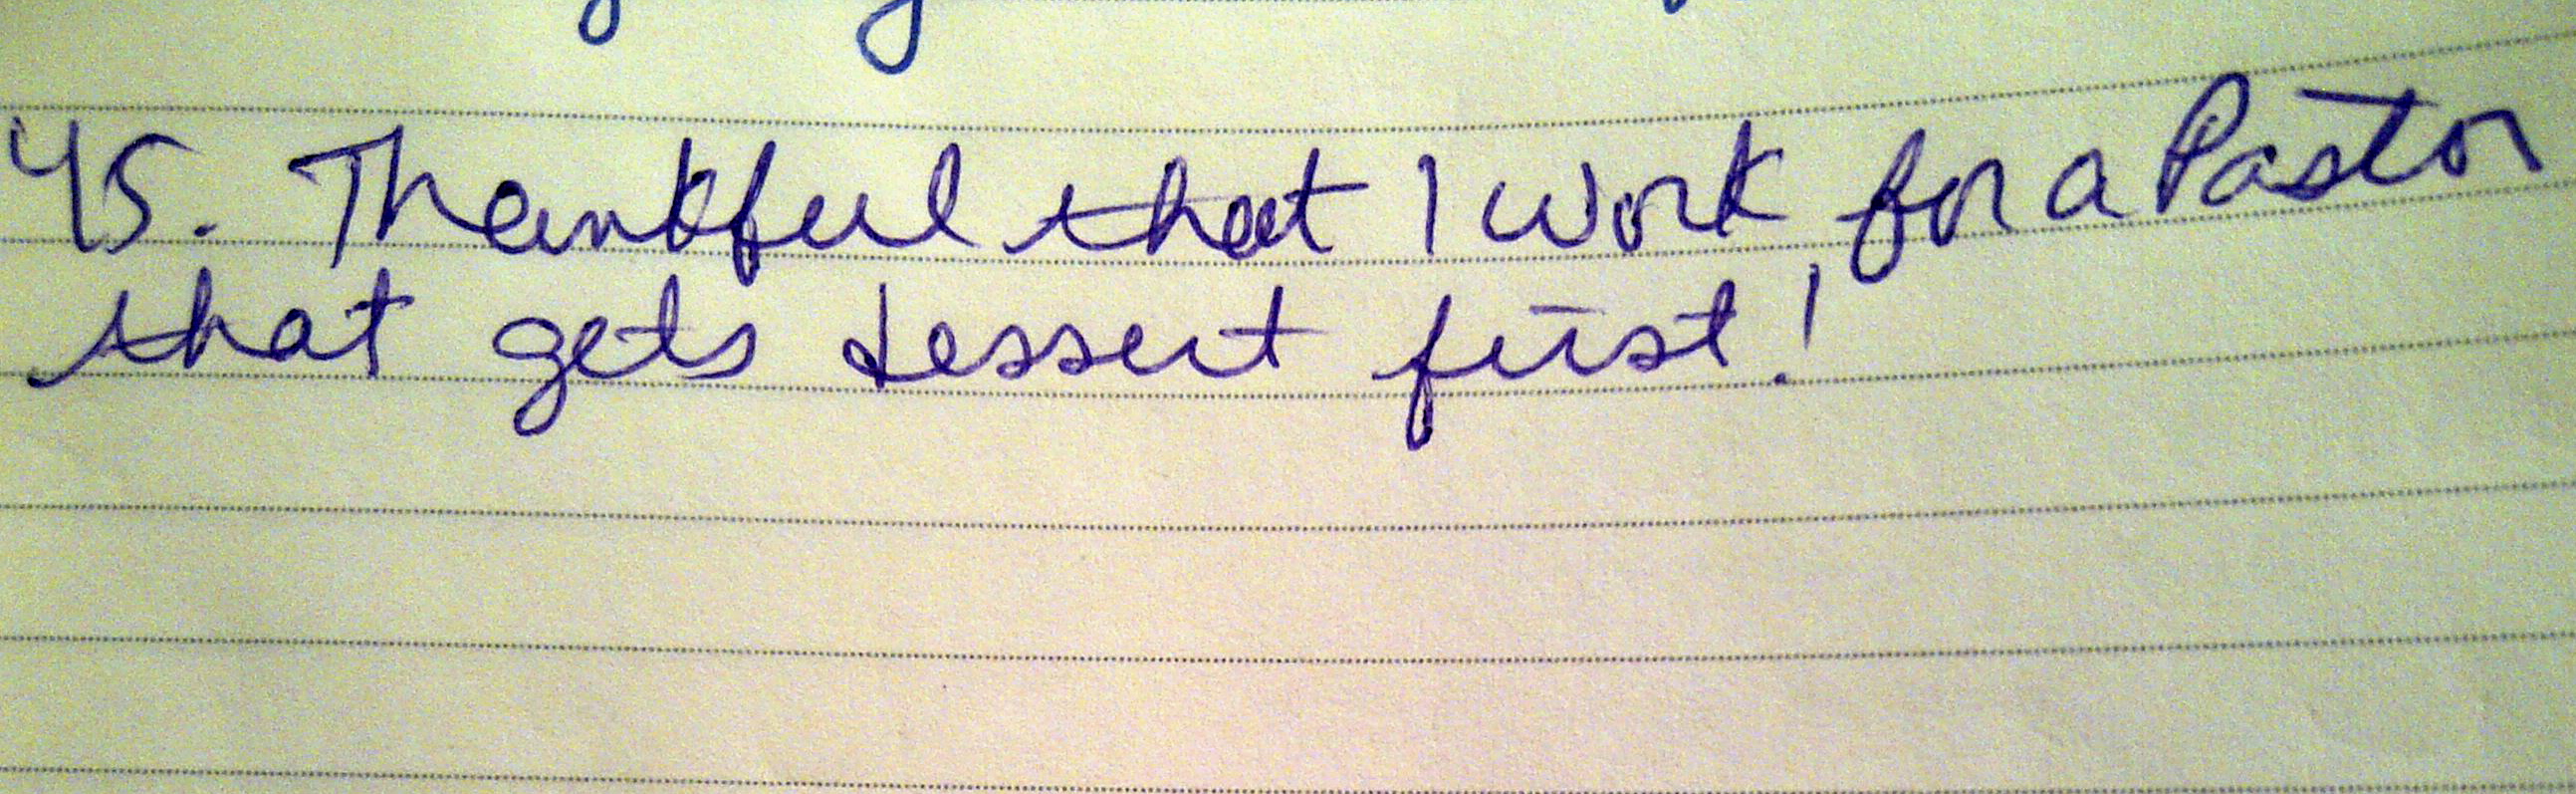 45. Thankful that I work for a Pastor
that gets dessert first!